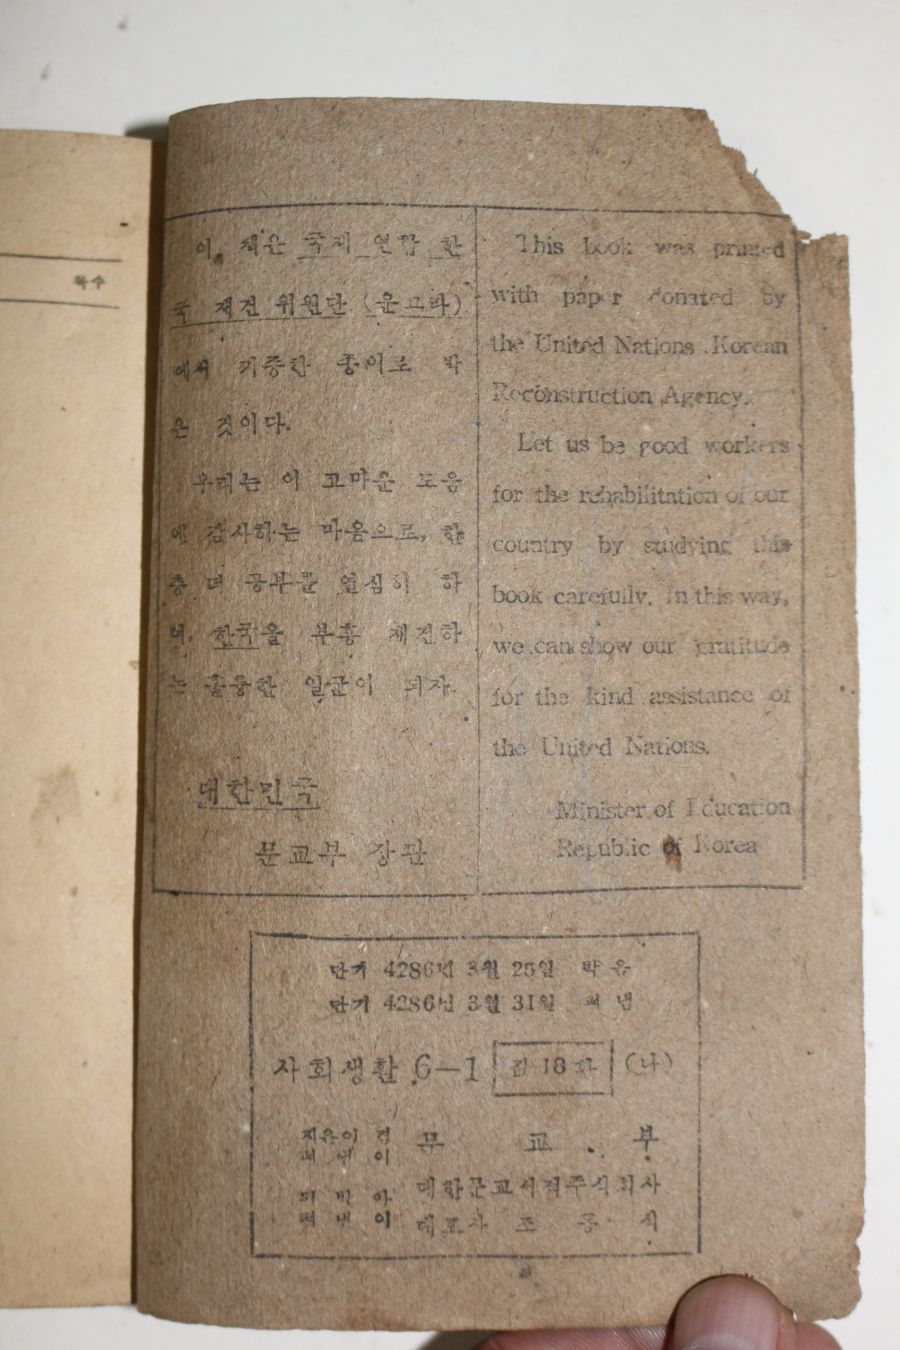 목수
이 책은 국제 연합 한
국 재건 위원단 (운끄라)
에서 기증한 종이로 박
은 것이다.
우리는 이 고마운 도움
에 감사하는 마음으로, 한
층 더 공부를 열심히 하
여, 한국을 부흥 재건하
는 훌륭한 일꾼이 되자.
대한민국
문교부 장관
This book was printed
with paper donated by
the United Nations Korean
Reconstruction Agency.
Let us be good workers
for the rehabilitation of our
country by studying this
book carefully. In this way,
we can show our gratitude
for the kind assistance of
the United Nations.
Minister of Education
Republic of Korea
단기 4286년 3월 25일 박음
단기 4286년 3월 31일 펴냄
사회생활 6-1 (나)
지은이 겸 문교부
펴낸이
되박아 대한문교서적주식회사
펴낸이 대표자 조 동 식